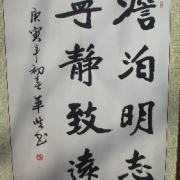 澹泊明志
寧靜致遠
庚寅年初春華书